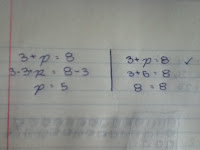 3 + p = 8
3-3+p = 8-3
p = 5
3 + p = 8 ✓
3 + 5 = 8
8 = 8